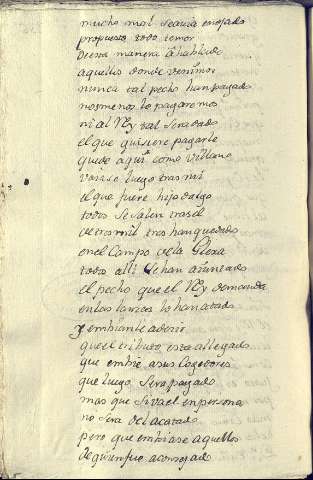 mucho mal se auia enojado
propuesto todo temor
desta manera a hablado
aquellos donde venimos
nunca tal pecho han pagado
nosmenos lo pagaremos
ni al Rey tal sera dado
el que quisiere pagarle
quede aqui como villano
vaiase luego tras mi
el que fuere hijo dalgo
todos se salen tras el
de tres mil tres han quedado
en el Campo de la Glera
todos alli se han ajuntado
el pecho que el Rey demanda
en las lanzas lo han atado
y embiante a decir
que el tributo esta allegado
que embie a sus Cogedores
que luego sera pagado
mas que si va el en persona
no sera del acatado
pero que embiase aquellos
de quien fue aconsejado